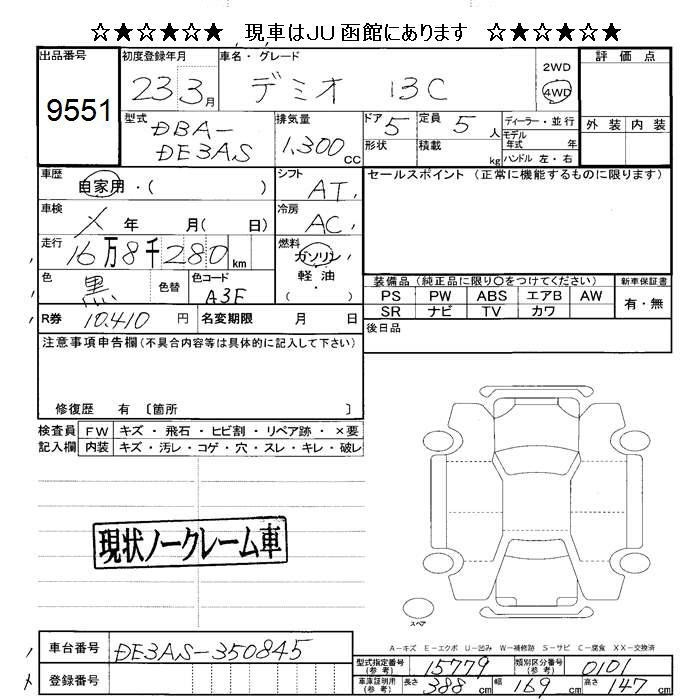 ☆★☆★☆★ 現車はJU函館にあります ☆★☆★☆★
出品番号 9551
初度登録年月 23 3月
車名・グレード デミオ 13C
2WD 4WD
評価点
外装 内装
型式 DBA-DE3AS
排気量 1,300cc
ドア 5 形状
定員 5人 積載 kg
ディーラー・並行
モデル年式 年
ハンドル 左・右
車歴 自家用・( )
シフト AT
セールスポイント(正常に機能するものに限ります)
車検 X 年 月( 日)
冷房 AC
走行 16万8千280km
燃料 ガソリン 軽油 ( )
色 黒 色替
色コード A3F
装備品(純正品に限り○をつけてください) 新車保証書
PS PW ABS エアB AW 有・無
SR ナビ TV カワ
R券 10,410円 名変期限 月 日
後日品
注意事項申告欄(不具合内容等は具体的に記入して下さい)
修復歴 有〔箇所 〕
検査員記入欄
FW キズ・飛石・ヒビ割・リペア跡・×要
内装 キズ・汚レ・コゲ・穴・スレ・キレ・破レ
現状ノークレーム車
スペア
A-キズ E-エクボ U-凹み W-補修跡 S-サビ C-腐食 XX-交換済
車台番号 DE3AS-350845
登録番号
型式指定番号(参考) 15779 類別区分番号(参考) 0101
車庫証明用(参考) 長さ 388cm 幅 169cm 高さ 147cm